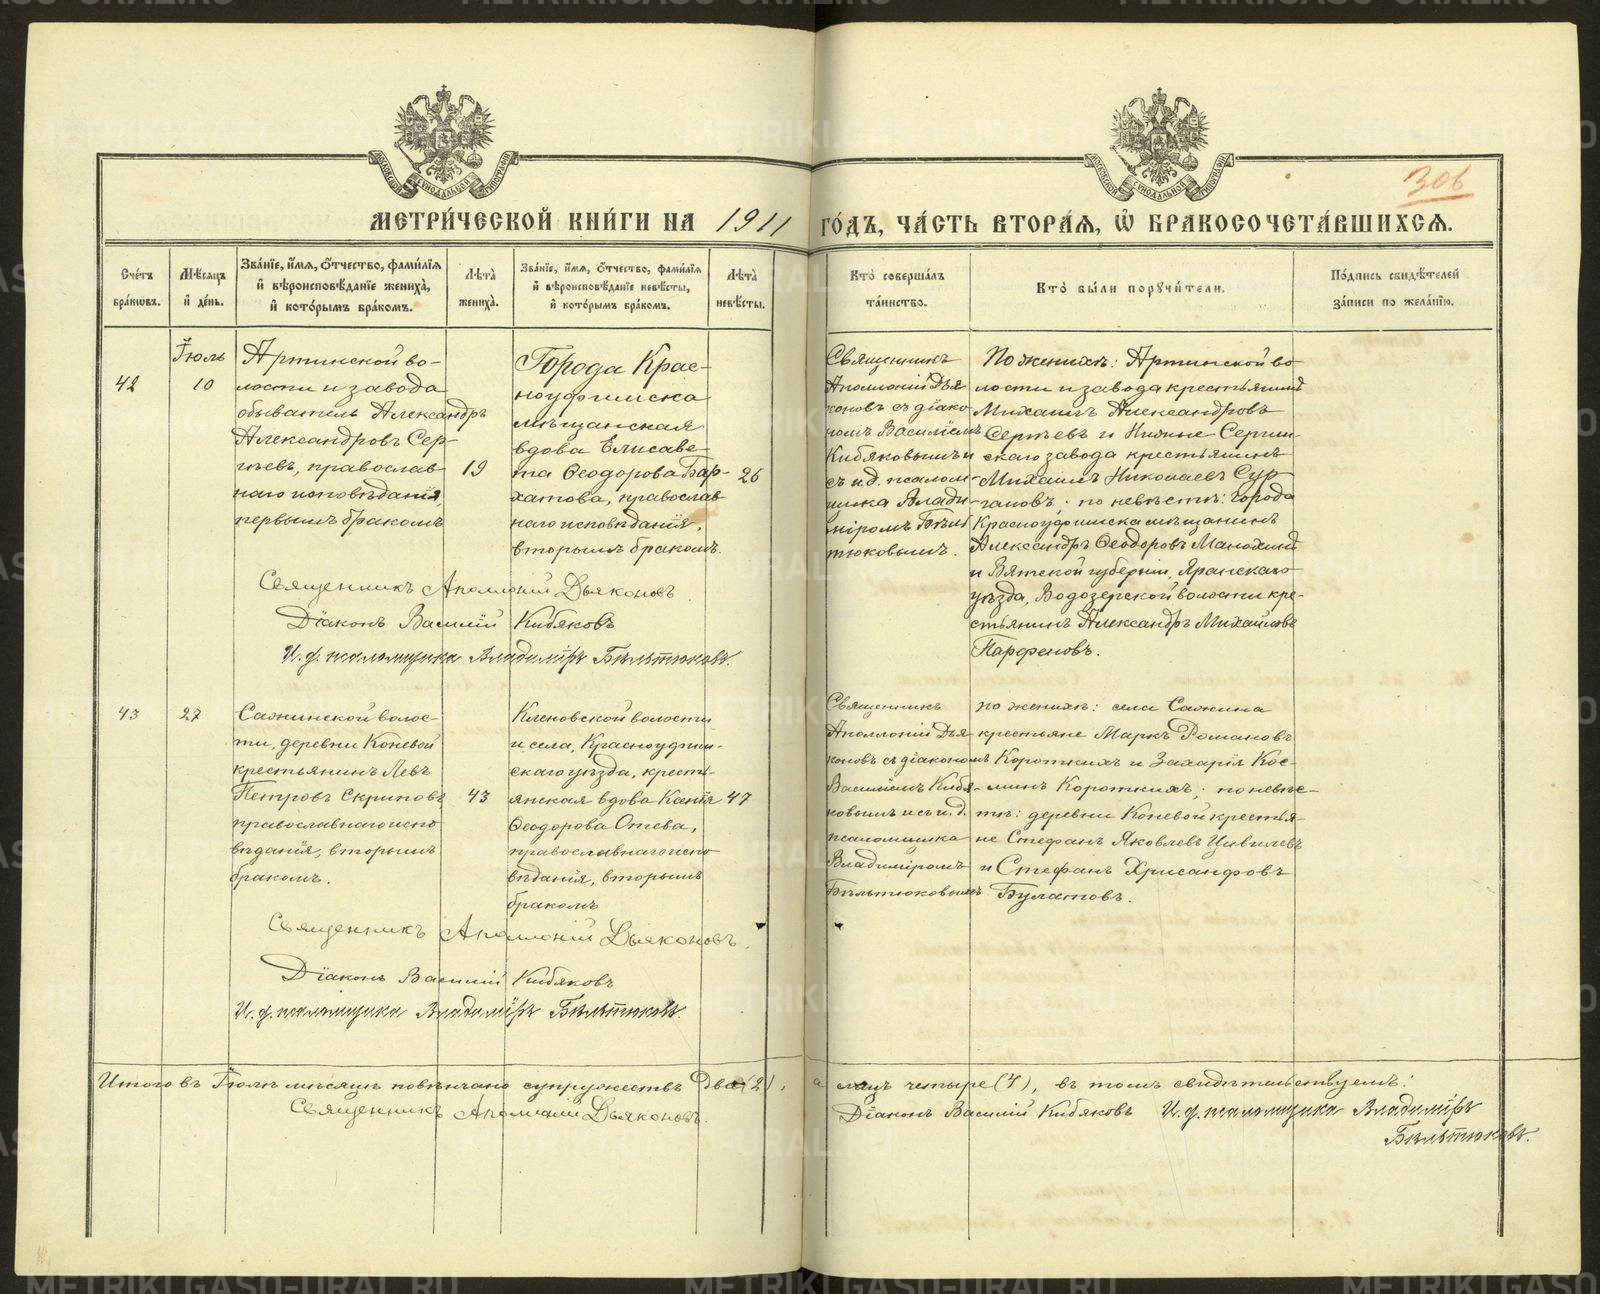 МЕТРИ́ЧЕСКОЙ КНИ́ГИ НА 1911 ГО́ДЪ, ЧА́СТЬ ВТОРА́Я, Ѽ БРАКОСОЧЕТА́ВШИХСЯ.
306
МОСКОВСКОЙ СѴНОДАЛЬНОЙ ТИПОГРАФІИ
МОСКОВСКОЙ СѴНОДАЛЬНОЙ ТИПОГРАФІИ
Сче́тъ
бра́кωвъ.
Мѣ́сѧцъ
и҆ де́нь.
Зва́нїе, и҆́мѧ, ѻ҆́тчество, фами́лїѧ
и҆ вѣроисповѣ́данїе жениха̀,
и҆ кото́рымъ бра́комъ.
Лѣ́та
жениха̀.
Зва́нїе, и҆́мѧ, ѻ҆́тчество, фами́лїѧ
и҆ вѣроисповѣ́данїе невѣ́сты,
и҆ кото́рымъ бра́комъ.
Лѣ́та
невѣ́сты.
Кто̀ соверша́лъ
та́инство.
Кто̀ бы́ли порꙋчи́тели.
По́дпись свидѣ́телей
за́писи по жела́нїю.
42
Іюль
10
Артинской во-
лости и завода
обыватель Александръ
Александровъ Сер-
гѣевъ, православ
наго исповѣданія,
первымъ бракомъ
19
Города Крас-
ноуфимска
мѣщанская
вдова Елисаве-
та Ѳеодорова Бар-
хатова, православ
наго исповѣданія,
вторымъ бракомъ.
26
Священникъ
Аполлоній Дья
коновъ съ діако
номъ Василіемъ
Кибяковымъ и
съ и.д. псалом-
щика Влади-
міромъ Бѣль
тюковымъ.
По женихѣ: Артинской во
лости и завода крестьянинъ
Михаилъ Александровъ
Сергѣевъ и Нижне-Сергин-
скаго завода крестьянинъ
Михаилъ Николаевъ Сур-
гановъ; по невѣстѣ: города
Красноуфимска мѣщанинъ
Александръ Ѳеодоровъ Манохинъ
и Вятской губерніи, Яранскаго
уѣзда, Водозерской волости кре-
стьянинъ Александръ Михайловъ
Парфеновъ.
Священникъ Аполлоній Дьяконовъ.
Діаконъ Василій Кибяковъ
И.д. псаломщика Владиміръ Бѣльтюковъ.
43
27
Сажинской волос-
ти, деревни Коневой
крестьянинъ Левъ
Петровъ Скриповъ
православнаго испо
вѣданія, вторымъ
бракомъ.
43
Кленовской волости
и села, Красноуфим-
скаго уѣзда, кресть-
янская вдова Ксенія
Ѳеодорова Отева,
православнаго испо
вѣданія, вторымъ
бракомъ
47
Священникъ
Аполлоній Дья
коновъ съ діакономъ
Василіемъ Кибя-
ковымъ и съ и.д.
псаломщика
Владиміромъ
Бѣльтюковымъ
по женихѣ: села Сажина
крестьяне Маркъ Романовъ
Короткихъ и Захарія Кос-
минъ Короткихъ; по невѣс-
тѣ: деревни Коневой крестья-
не Стефанъ Яковлевъ Цивилевъ
и Стефанъ Хрисанфовъ
Булатовъ.
Священникъ Аполлоній Дьяконовъ.
Діаконъ Василій Кибяковъ
И.д. псаломщика Владиміръ Бѣльтюковъ.
Итого въ Іюлѣ мѣсяцѣ повѣнчано супружествъ два (2), а лицъ четыре (4), въ томъ свидѣтельствуемъ:
Священникъ Аполлоній Дьяконовъ. Діаконъ Василій Кибяковъ И.д. псаломщика Владиміръ
Бѣльтюковъ.
METRIKI.GASO-URAL.RU